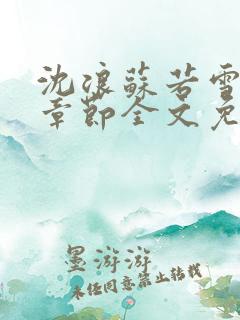 沈浪蘇若雪
章節全文免
墨游游
未经同意禁止转载